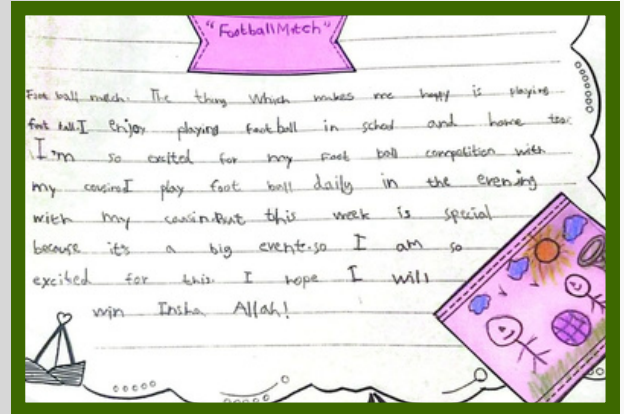 "Football Match"
Foot ball match. The thing which makes me happy is playing
foot ball.I enjoy playing foot ball in school and home too.
I'm so excited for my Foot ball competition with
my cousins.I play foot ball daily in the evening
with my cousin.But this week is special
because it's a big event.so I am so
excited for this. I hope I will
win Insha Allah!